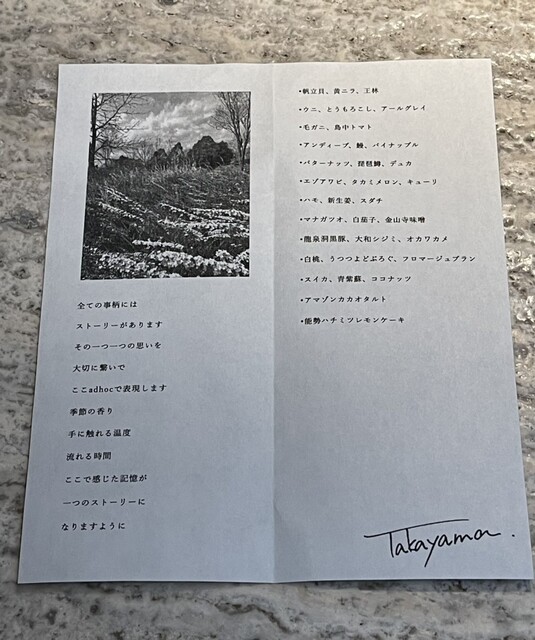 全ての事柄には
ストーリーがあります
その一つ一つの思いを
大切に繋いで
ここadhocで表現します
季節の香り
手に触れる温度
流れる時間
ここで感じた記憶が
一つのストーリーに
なりますように
・帆立貝、黄ニラ、王林
・ウニ、とうもろこし、アールグレイ
・毛ガニ、島中トマト
・アンディーブ、鰻、パイナップル
・バターナッツ、琵琶鱒、デュカ
・エゾアワビ、タカミメロン、キューリ
・ハモ、新生姜、スダチ
・マナガツオ、白茄子、金山寺味噌
・龍泉洞黒豚、大和シジミ、オカワカメ
・白桃、うつつよどぶろぐ、フロマージュブラン
・スイカ、青紫蘇、ココナッツ
・アマゾンカカオタルト
・能勢ハチミツレモンケーキ
Takayama.